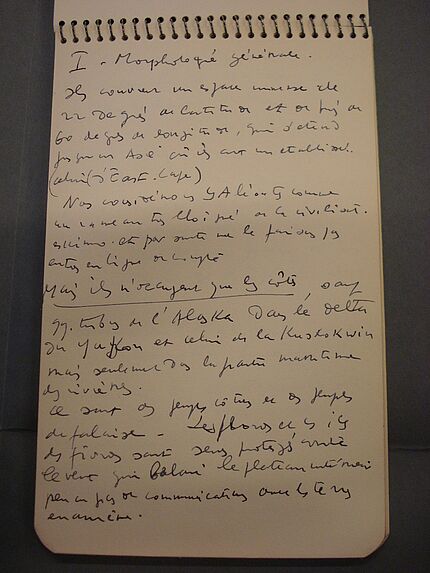 I - Morphologie générale.
Ils couvrent un espace immense de
22 degrés de latitude et de près de
60 degrés de longitude, qui s'étend
jusqu'en Asie où ils ont un établisst.
(celui d'East-Cape)
Nous considérons les Aléoutes comme
un rameau très éloigné de la civilisat.
eskimo et par suite ne le faisons pas
entrer en ligne de compte
Mais ils n'occupent que les côtes, sauf
qq. tribus de l'Alaska dans le delta
du Yukon et celui de la Kuskokwim
mais seulement ds la partie maritime
des rivières.
Ce sont des peuples côtiers et des peuples
de falaise - Les fiords et les îles
des fiords sont seuls protégés contre
le vent qui balaie le plateau intérieur
peu ou pas de communications avec les terres
en arrière.